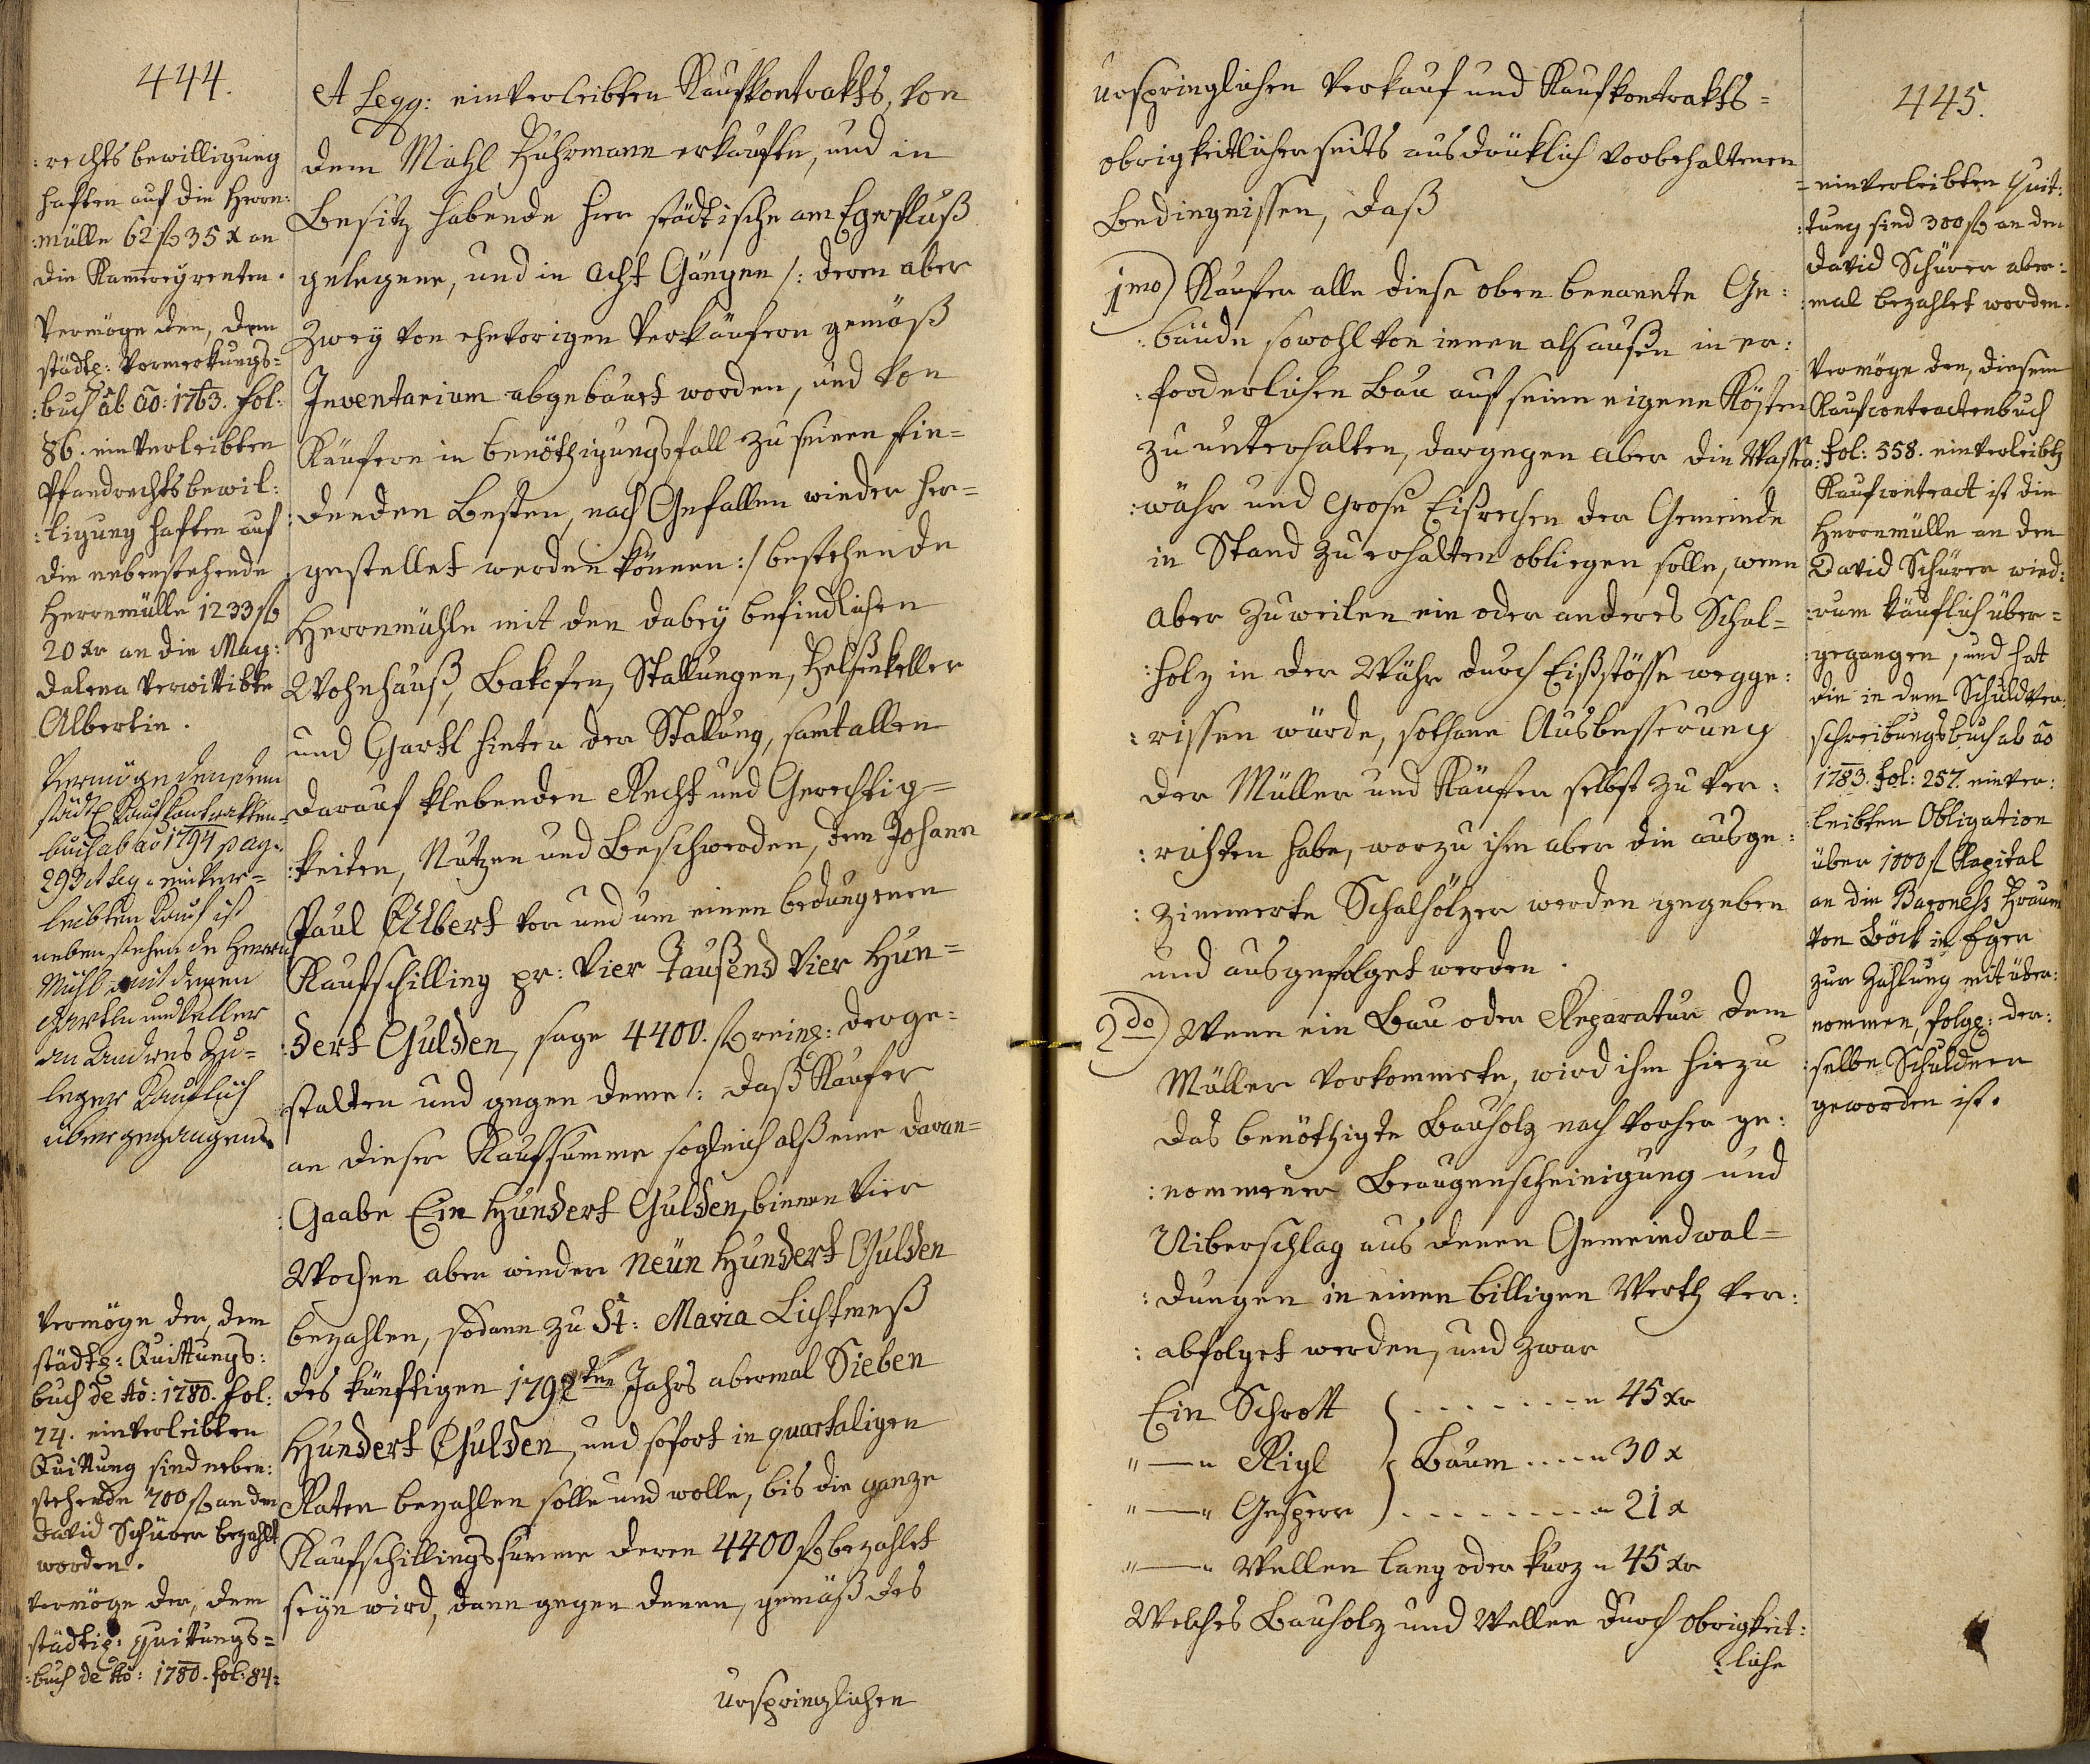 444.
:rechts bewilligung
haften auf die Herrn:
:mülle 62 fl 35 x an
die Kammereyrenten.
Vermöge den, dem
städtg: Vormerkungs=
:buch ab ao: 1763. fol:
86. einverleibten
Pfandrechtsbewil:
:ligung haften auf
die nebenstehende
Herrnmülle 1233 fl
20 xr an die Mag:
dalena verwittibte
Albertin.
Vermöge den, dem
städt Kaufkontrakten=
buch ab ao 1794 pag.
293 et seq. einver=
leibten Kauf ist
nebenstehende Herrn
Mühl mit denen
Gärtln und Keller
an Andreas Zu=
leger Käuflich
übergegangen.
Vermöge der, dem
städtg: Quittungs:
buch de Ao: 1780. fol:
74. einverleibten
Quittung sind neben:
stehende 700 fl an den
David Schürer bezahlt
worden.
Vermöge der, dem
städtig: Quittungs=
:buch de Ao: 1780. fol: 84:
et seqq: einverleibten Kaufkontrakts, von
dem Michl Fuhrmann erkaufte, und in
Besitz habende hier städtische am Egerfluß
gelegene, und in Acht Gängen /: deren aber
Zwey von ehevorigen Verkäufern gemäß
Inventarium abgebauet worden, und von
Käufern in benöthigungsfall zu seinen fin=
:denden Besten, nach Gefallen wieder her=
gestellet werden können :/ bestehende
Herrnmühle mit den dabey befindlichen
Wohnhauß, Bakofen, Stallungen, Felsenkeller
und Gartl hinter der Stallung, samt allen
darauf klebenden Recht und Gerechtig=
:keiten, Nutzen und Beschwerden, dem Johann
Paul Albert vor und um einen bedungenen
Kaufschilling pr: Vier Tausend Vier Hun=
:dert Gulden, sage 4400. fl reing: derge:
stalten und gegen deme: daß Kaufer
an dieser Kaufsumme sogleich alß eine daran=
:Gaabe Ein Hundert Gulden, binnen Vier
Wochen aber wieder Neün Hundert Gulden
bezahlen, sodann zu St: Maria Lichtmeß
des künftigen 1792ten Jahrs abermal Sieben
Hundert Gulden, und sofort in quartaligen
Raten bezahlen solle und wolle, bis die ganze
Kaufschillingssumme deren 4400 fl bezahlet
seyn wird, dann gegen denen, gemäß des
urspringlichen
urspringlichen Verkauf und Kaufkontrakts=
obrigkeitlicher seits ausdrüklich vorbehaltenen
Bedingnissen, daß
1mo) Kaufer alle diese oben benannte Ge:
:bäude sowohl von innen als außen in er:
:forderlichen Bau auf seine eigene Kösten
zu unterhalten, dargegen aber die Wasser:
:währ und Grose Eisrechen der Gemeinde
in Stand zu erhalten obliegen solle, wenn
aber zuweilen ein oder anderes Schal=
:holz in der Währ durch Eißstösse wegge:
:rissen würde, sothane Ausbesserung
der Müller und Käufer selbst zu ver:
:richten habe, worzu ihm aber die ausge:
:zimmerte Schalhölzer werden gegeben
und ausgefolget werden.
2do) Wenn ein Bau oder Reparatur dem
Müller vorkommete, wird ihm hiezu
das benöthigte Bauholz nach vorher ge:
:nommener Beaugenscheinigung und
Uiberschlag aus denen Gemeindwal=
:dungen in einen billigen Werth ver:
:abfolget werden, und zwar
Ein Schrott } . . . . . . . " 45 xr
"—" Rigl } Baum . . . . " 30 x
"—" Gesperr } . . . . . . . . " 21 x
"—" Wellen lang oder kurz " 45 xr
Welches Bauholz und Wellen durch Obrigkeit:
:liche
445.
=einverleibten Quit:
:tung sind 300 fl an den
David Schürer aber:
:mal bezahlet worden.
Vermöge den, diesem
Kaufcontractenbuch
fol: 558. einverleibt
Kaufcontract ist die
Herrnmülle an den
David Schürer wied:
:rum käuflich über=
:gegangen, und hat
die in dem Schuldver:
schreibungsbuch ab ao
1783. fol: 257. einver:
:leibten Obligation
über 1000 fl Kapital
an die Baroness Fraun
von Böck in Eger
zur Zahlung mit über:
nommen, folgg: der:
:selbe Schuldner
geworden ist.